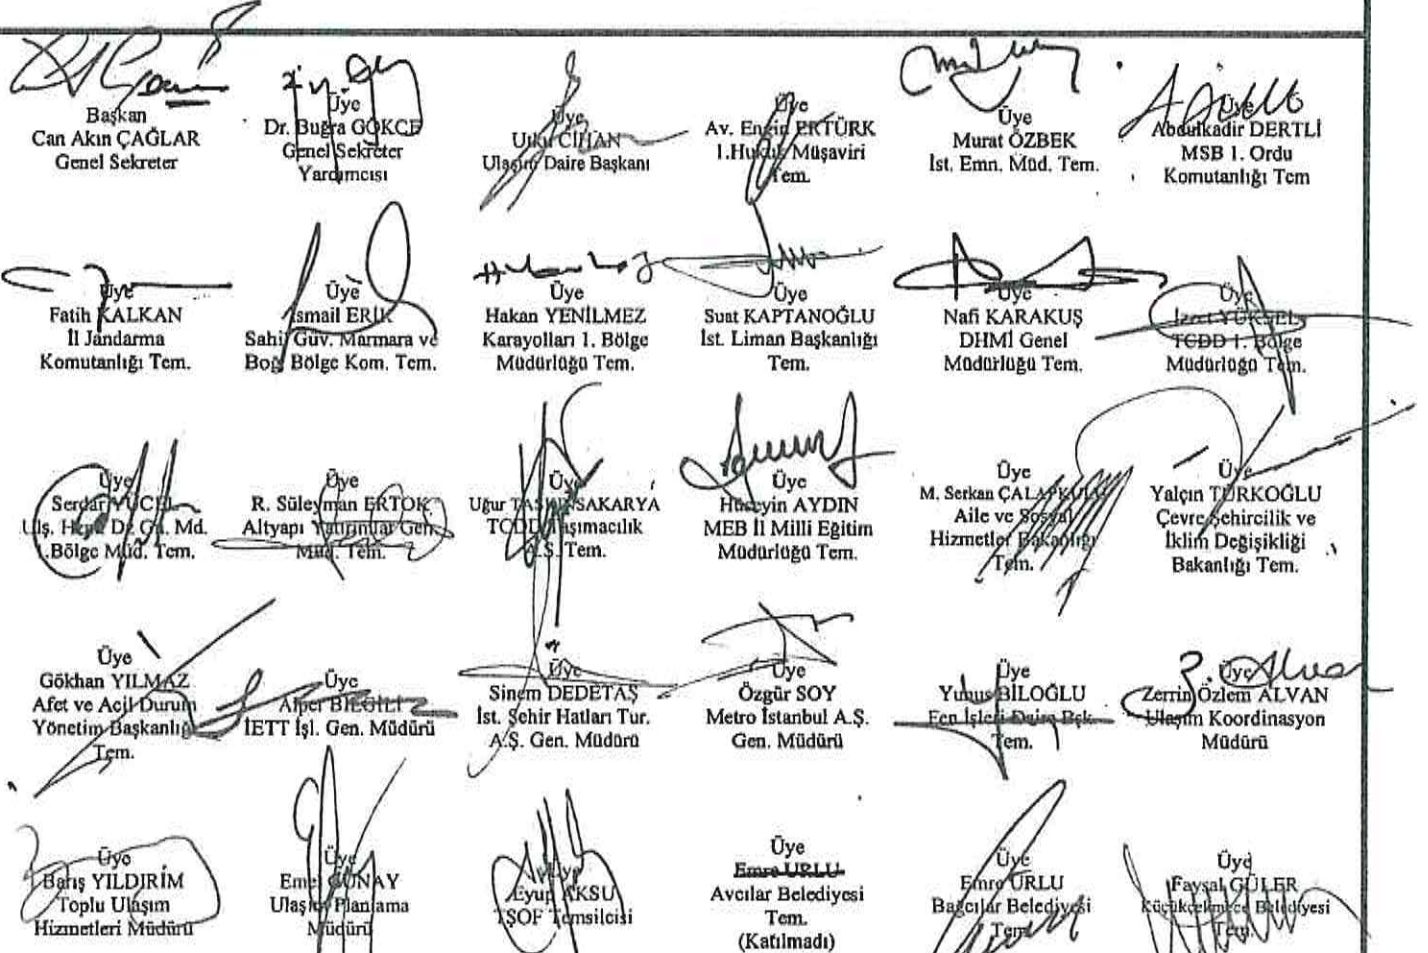 Başkan
Can Akın ÇAĞLAR
Genel Sekreter
Üye
Dr. Buğra GÖKCE
Genel Sekreter
Yardımcısı
Üye
Utku CİHAN
Ulaşım Daire Başkanı
Üye
Av. Engin ERTÜRK
1.Hukuk Müşaviri
Tem.
Üye
Murat ÖZBEK
İst. Emn. Müd. Tem.
Üye
Abdulkadir DERTLİ
MSB 1. Ordu
Komutanlığı Tem
Üye
Fatih KALKAN
İl Jandarma
Komutanlığı Tem.
Üye
İsmail ERİK
Sahil Güv. Marmara ve
Boğ. Bölge Kom. Tem.
Üye
Hakan YENİLMEZ
Karayolları 1. Bölge
Müdürlüğü Tem.
Üye
Suat KAPTANOĞLU
İst. Liman Başkanlığı
Tem.
Üye
Nafi KARAKUŞ
DHMİ Genel
Müdürlüğü Tem.
Üye
İzzet YÜKSEL
TCDD 1. Bölge
Müdürlüğü Tem.
Üye
Serdar YÜCEL
Ulş. Md.
1.Bölge Müd. Tem.
Üye
R. Süleyman ERTOK
Altyapı Yatırımlar Gen.
Müd. Tem.
Üye
Uğur TAŞKINSAKARYA
TCDD Taşımacılık
A.Ş. Tem.
Üye
Hüseyin AYDIN
MEB İl Milli Eğitim
Müdürlüğü Tem.
Üye
M. Serkan
Aile ve Sosyal
Hizmetler Bakanlığı
Tem.
Üye
Yalçın TÜRKOĞLU
Çevre Şehircilik ve
İklim Değişikliği
Bakanlığı Tem.
Üye
Gökhan YILMAZ
Afet ve Acil Durum
Yönetim Başkanlığı
Tem.
Üye
Alper BİLGİLİ
İETT İşl. Gen. Müdürü
Üye
Sinem DEDETAŞ
İst. Şehir Hatları Tur.
A.Ş. Gen. Müdürü
Üye
Özgür SOY
Metro İstanbul A.Ş.
Gen. Müdürü
Üye
Yunus BİLOĞLU
Fen İşleri Daire Bşk.
Tem.
Üye
Zerrin Özlem ALVAN
Ulaşım Koordinasyon
Müdürü
Üye
Barış YILDIRIM
Toplu Ulaşım
Hizmetleri Müdürü
Üye
GÜNAY
Ulaşım Planlama
Müdürü
Üye
Eyup AKSU
TŞOF Temsilcisi
Üye
Emre URLU
Avcılar Belediyesi
Tem.
(Katılmadı)
Üye
Emre URLU
Bağcılar Belediyesi
Tem.
Üye
Faysal GÜLER
Küçükçekmece Belediyesi
Tem.